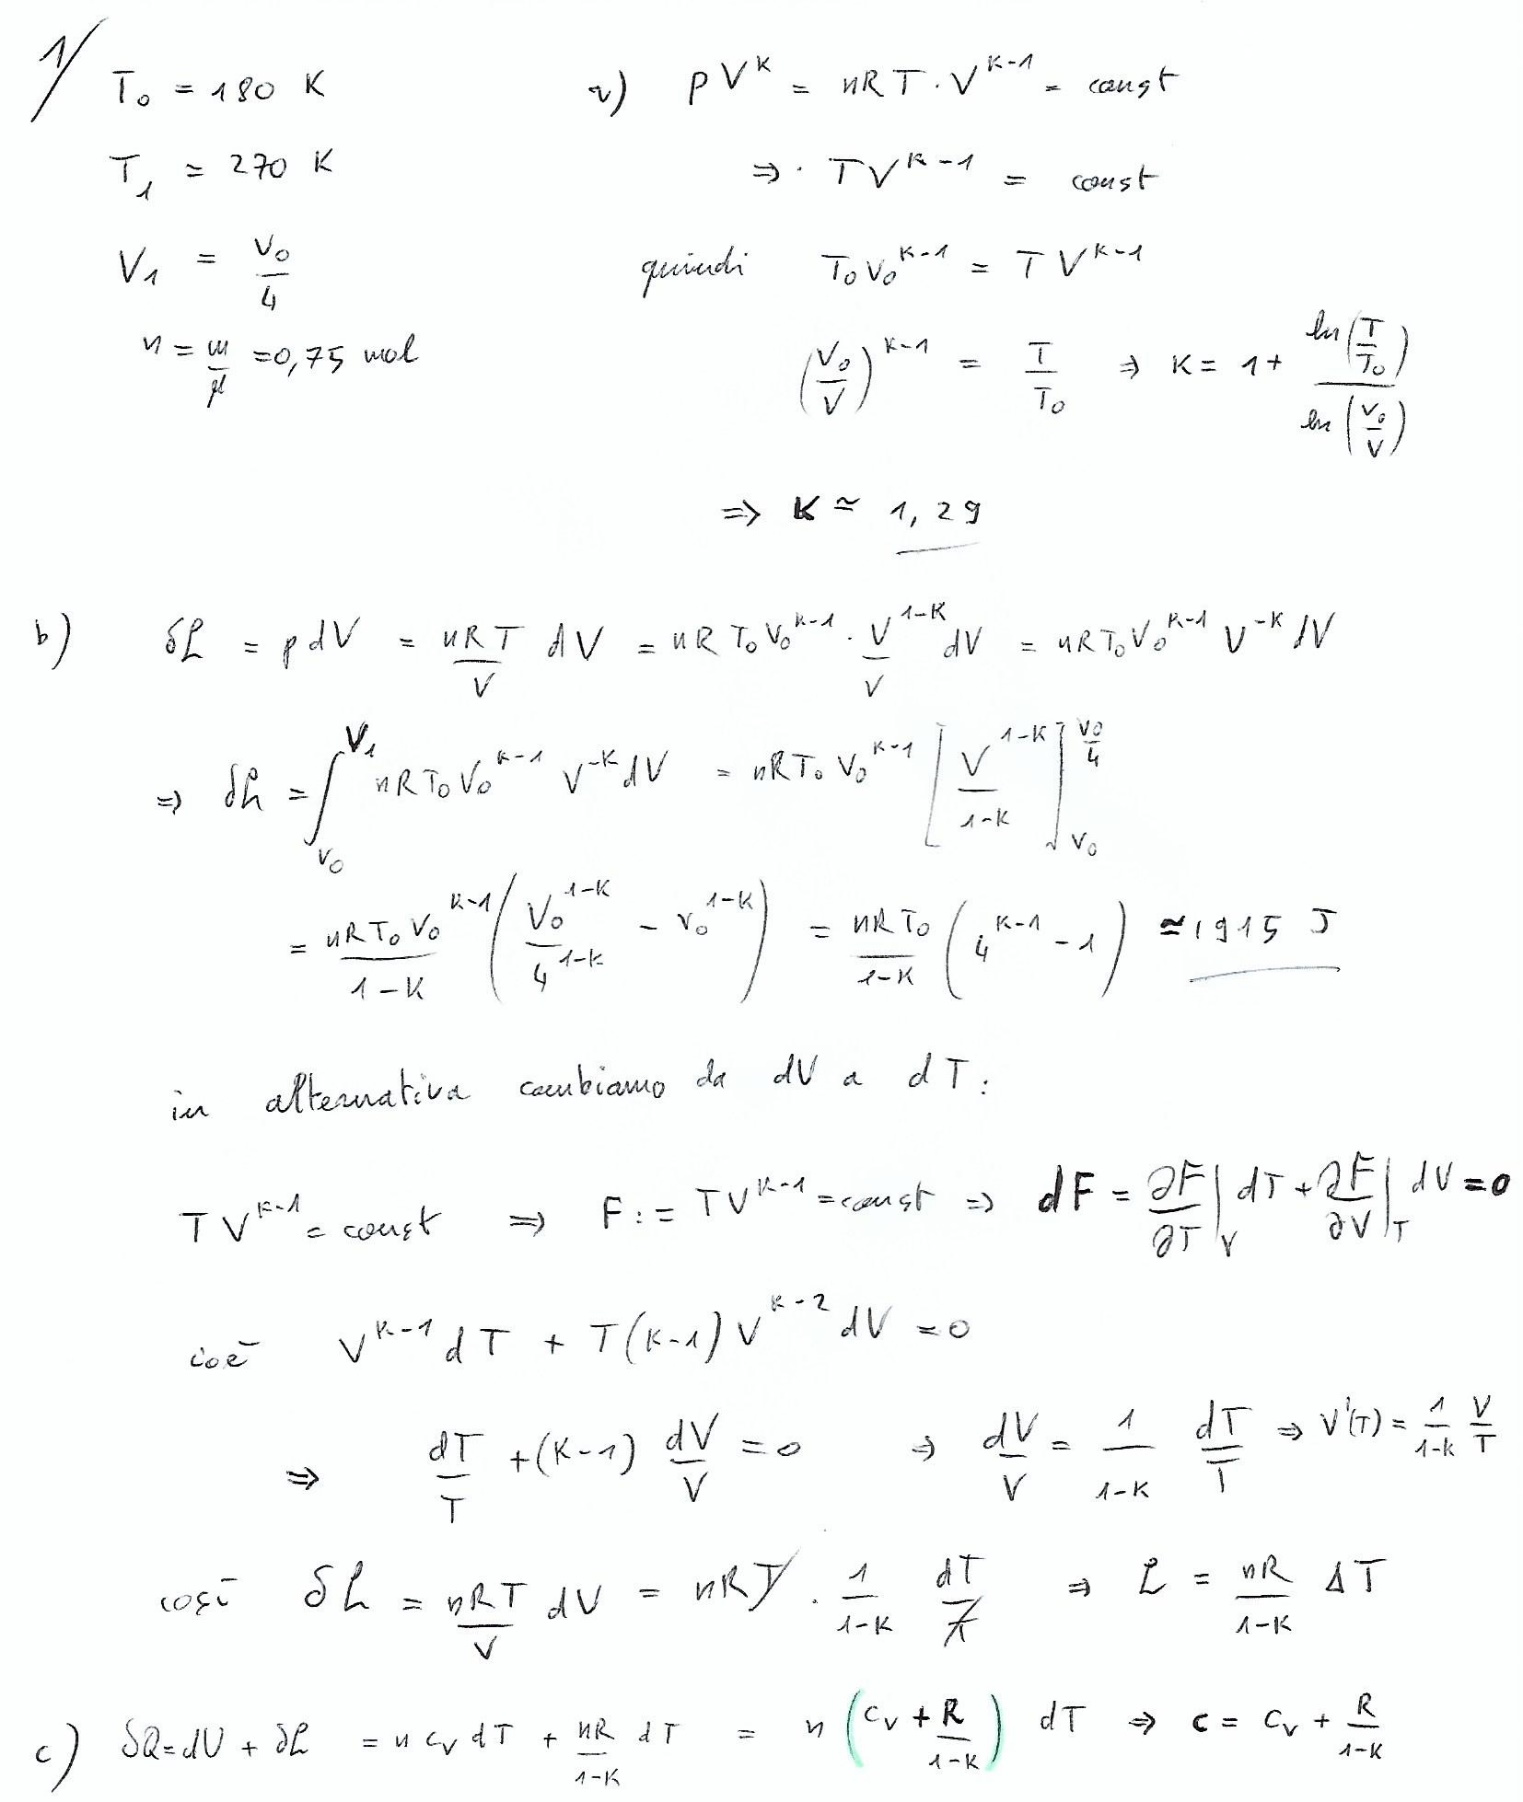 1/
T₀ = 180 K
T₁ = 270 K
V₁ = V₀/4
n = m/μ = 0,75 mol
a) pV^K = nRT·V^(K-1) = const
⇒ · TV^(K-1) = const
quindi T₀V₀^(K-1) = TV^(K-1)
(V₀/V)^(K-1) = T/T₀ ⇒ K = 1 + ln(T/T₀)/ln(V₀/V)
⇒ K ≃ 1,29
b) δL = pdV = nRT/V dV = nRT₀V₀^(K-1) · V^(1-K)/V dV = nRT₀V₀^(K-1) V^(-K) dV
⇒ δL = ∫_{V₀}^{V₁} nRT₀V₀^(K-1) V^(-K) dV = nRT₀V₀^(K-1) [V^(1-K)/(1-K)]_{V₀}^{V₀/4}
= nRT₀V₀^(K-1)/(1-K) (V₀^(1-K)/4^(1-K) - V₀^(1-K)) = nRT₀/(1-K) (4^(K-1) - 1) ≃ 1915 J
in alternativa cambiamo da dV a dT:
TV^(K-1) = const ⇒ F := TV^(K-1) = const ⇒ dF = ∂F/∂T|_V dT + ∂F/∂V|_T dV = 0
cioè V^(K-1) dT + T(K-1) V^(K-2) dV = 0
⇒ dT/T + (K-1) dV/V = 0 ⇒ dV/V = 1/(1-K) dT/T ⇒ V'(T) = 1/(1-K) V/T
così δL = nRT/V dV = nRT · 1/(1-K) dT/T ⇒ L = nR/(1-K) ΔT
c) δQ = dU + δL = n c_V dT + nR/(1-K) dT = n (c_V + R/(1-K)) dT ⇒ c = c_V + R/(1-K)